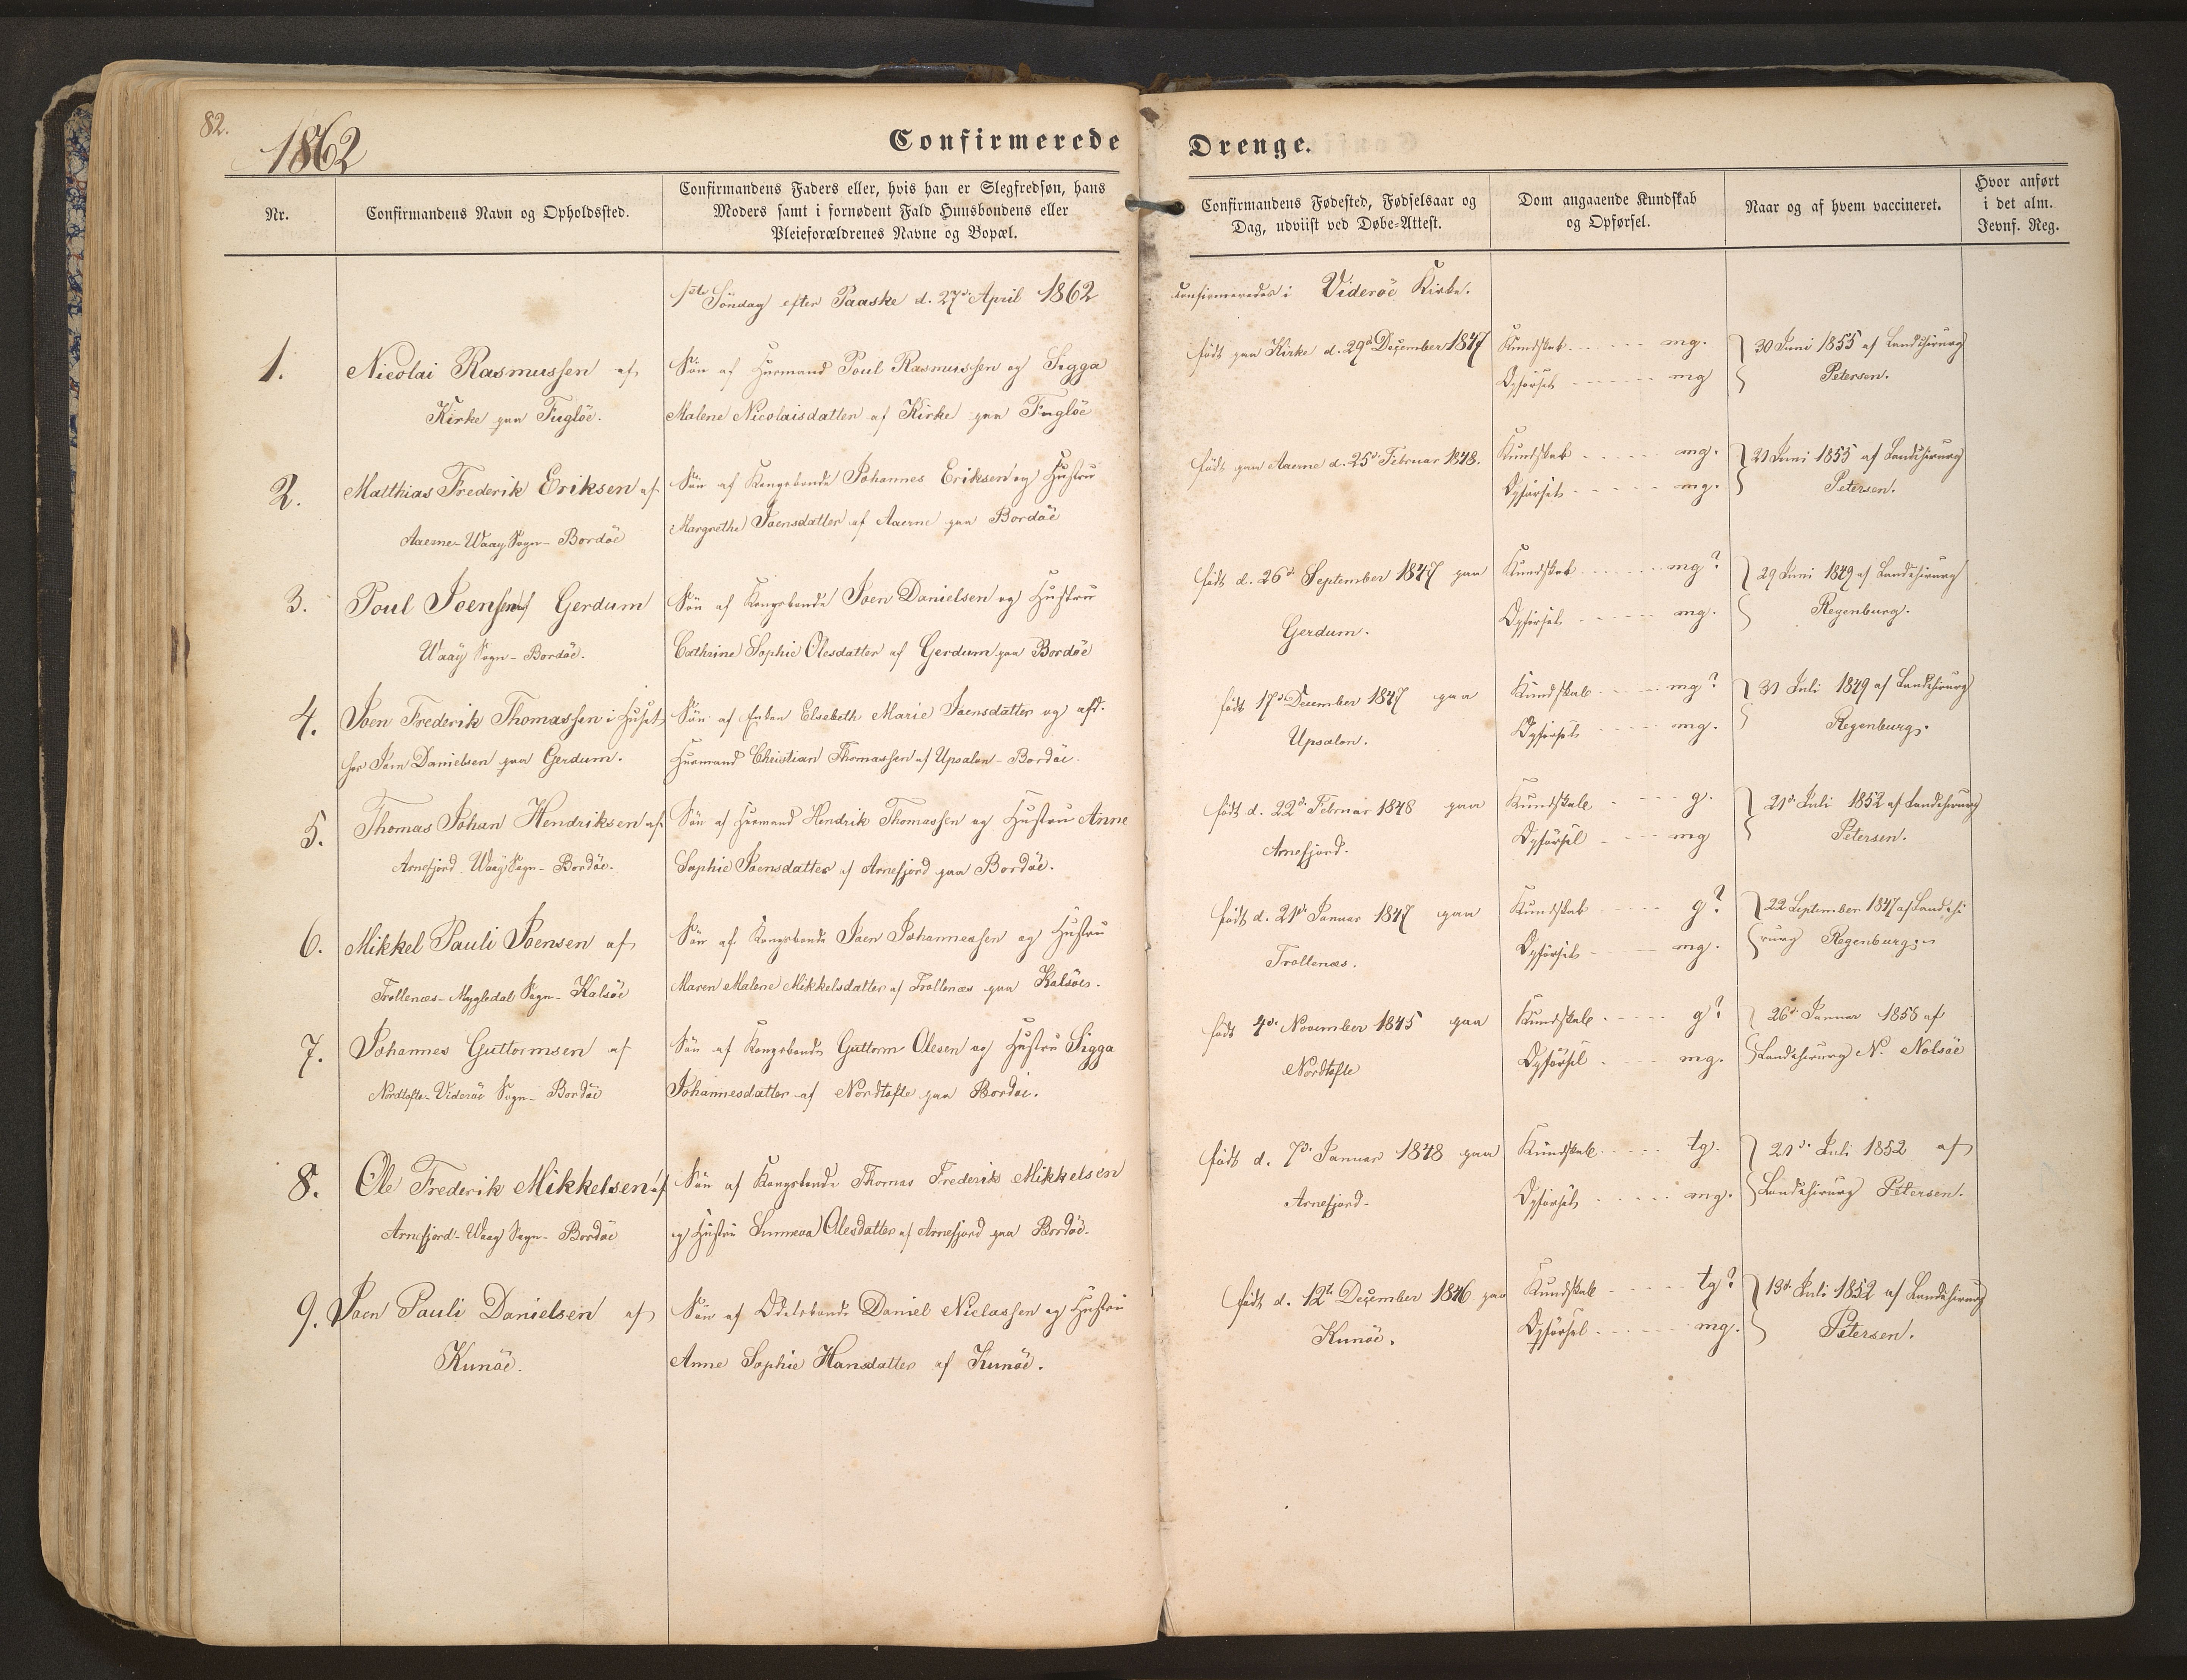 82.
1862
Confirmerede Drenge.
Nr.
Confirmandens Navn og Opholdssted.
Confirmandens Faders eller, hvis han er Slegfredsøn, hans
Moders samt i fornødent Fald Huusbondens eller
Pleieforældrenes Navne og Bopæl.
Confirmandens Fødested, Fødselsaar og
Dag, udviist ved Døbe=Attest.
Dom angaaende Kundskab
og Opførsel.
Naar og af hvem vaccineret.
Hvor anført
i det alm.
Jevnf. Reg.
1ste Söndag efter Paaske d. 27de April 1862
confirmeredes i Videröe Kirke.
1.
Nicolai Rasmussen af
Kirke paa Fuglöe.
Sön af Huusmand Poul Rasmussen og Sigga
Malene Nicolaisdatter af Kirke paa Fuglöe
födt paa Kirke d. 29de December 1847
Kundskab mg.
Opförsel mg
30 Juni 1853 af Landchirurg
Petersen.
2.
Matthias Frederik Eriksen af
Aaerne - Waag Sogn - Bordöe
Sön af Kongsbonde Johannes Eriksen og Hustru
Margrethe Joensdatter af Aaerne paa Bordöe
födt paa Aaerne d. 25de Februar 1848.
Kundskab mg.
Opförsel mg.
21 Juni 1853 af Landchirurg
Petersen.
3.
Poul Joensen af Gerdum
Waag Sogn - Bordöe.
Sön af Kongsbonde Joen Danielsen og Hustru
Cathrine Sophie Olesdatter af Gerdum paa Bordöe
födt d. 26de September 1847 paa
Gerdum.
Kundskab mg?
Opförsel mg.
29 Juni 1849 af Landchirurg
Regenburg.
4.
Joen Frederik Thomassen i Huset
hos Joen Danielsen paa Gerdum.
Sön af Enken Elsebeth Marie Joensdatter og afd.
Huusmand Christian Thomassen af Upsalen - Bordöe.
födt 17de December 1847 paa
Upsalen.
Kundskab mg?
Opförsel mg.
31 Juli 1849 af Landchirurg
Regenburg.
5.
Thomas Johan Hendriksen af
Arnefjord Waag Sogn - Bordöe.
Sön af Huusmand Hendrik Thomassen og Hustru Anne
Sophie Joensdatter af Arnefjord paa Bordöe.
födt d. 22de Februar 1848 paa
Arnefjord.
Kundskab g.
Opförsel mg
21de Juli 1852 af Landchirurg
Petersen.
6.
Mikkel Pauli Joensen af
Trollenæs - Mygledal Sogn - Kalsöe
Sön af Kongsbonde Joen Johannessen og Hustru
Maren Malene Mikkelsdatter af Trollenæs paa Kalsöe.
födt d. 21de Januar 1847 paa
Trollenæs.
Kundskab g?
Opförsel mg.
22 September 1847 af Landchi
rurg Regenburg
7.
Johannes Guttormsen af
Nordtofte - Videröe Sogn - Bordöe
Sön af Kongsbonde Guttorm Olesen og Hustru Sigga
Johannesdatter af Nordtofte paa Bordöe.
födt 4de November 1845 paa
Nordtofte
Kundskab g?
Opförsel mg.
26de Januar af
Landchirurg N. Nolsöe
8.
Ole Frederik Mikkelsen af
Arnefjord - Waag Sogn - Bordöe
Sön af Kongsbonde Thomas Frederik Mikkelsen
og Hustru Sunneva Olesdatter af Arnefjord paa Bordöe.
födt d. 7de Januar 1848 paa
Arnefjord.
Kundskab tg.
Opförsel mg.
21de Juli 1852 af
Landchirurg Petersen.
9.
Joen Pauli Danielsen af
Kunöe.
Sön af Odelsbonde Daniel Niclassen og Hustru
Anne Sophie Hansdatter af Kunöe.
födt d. 12te December 1846 paa
Kunöe.
Kundskab tg?
Opförsel mg.
13de Juli 1852 af Landchirurg
Petersen.